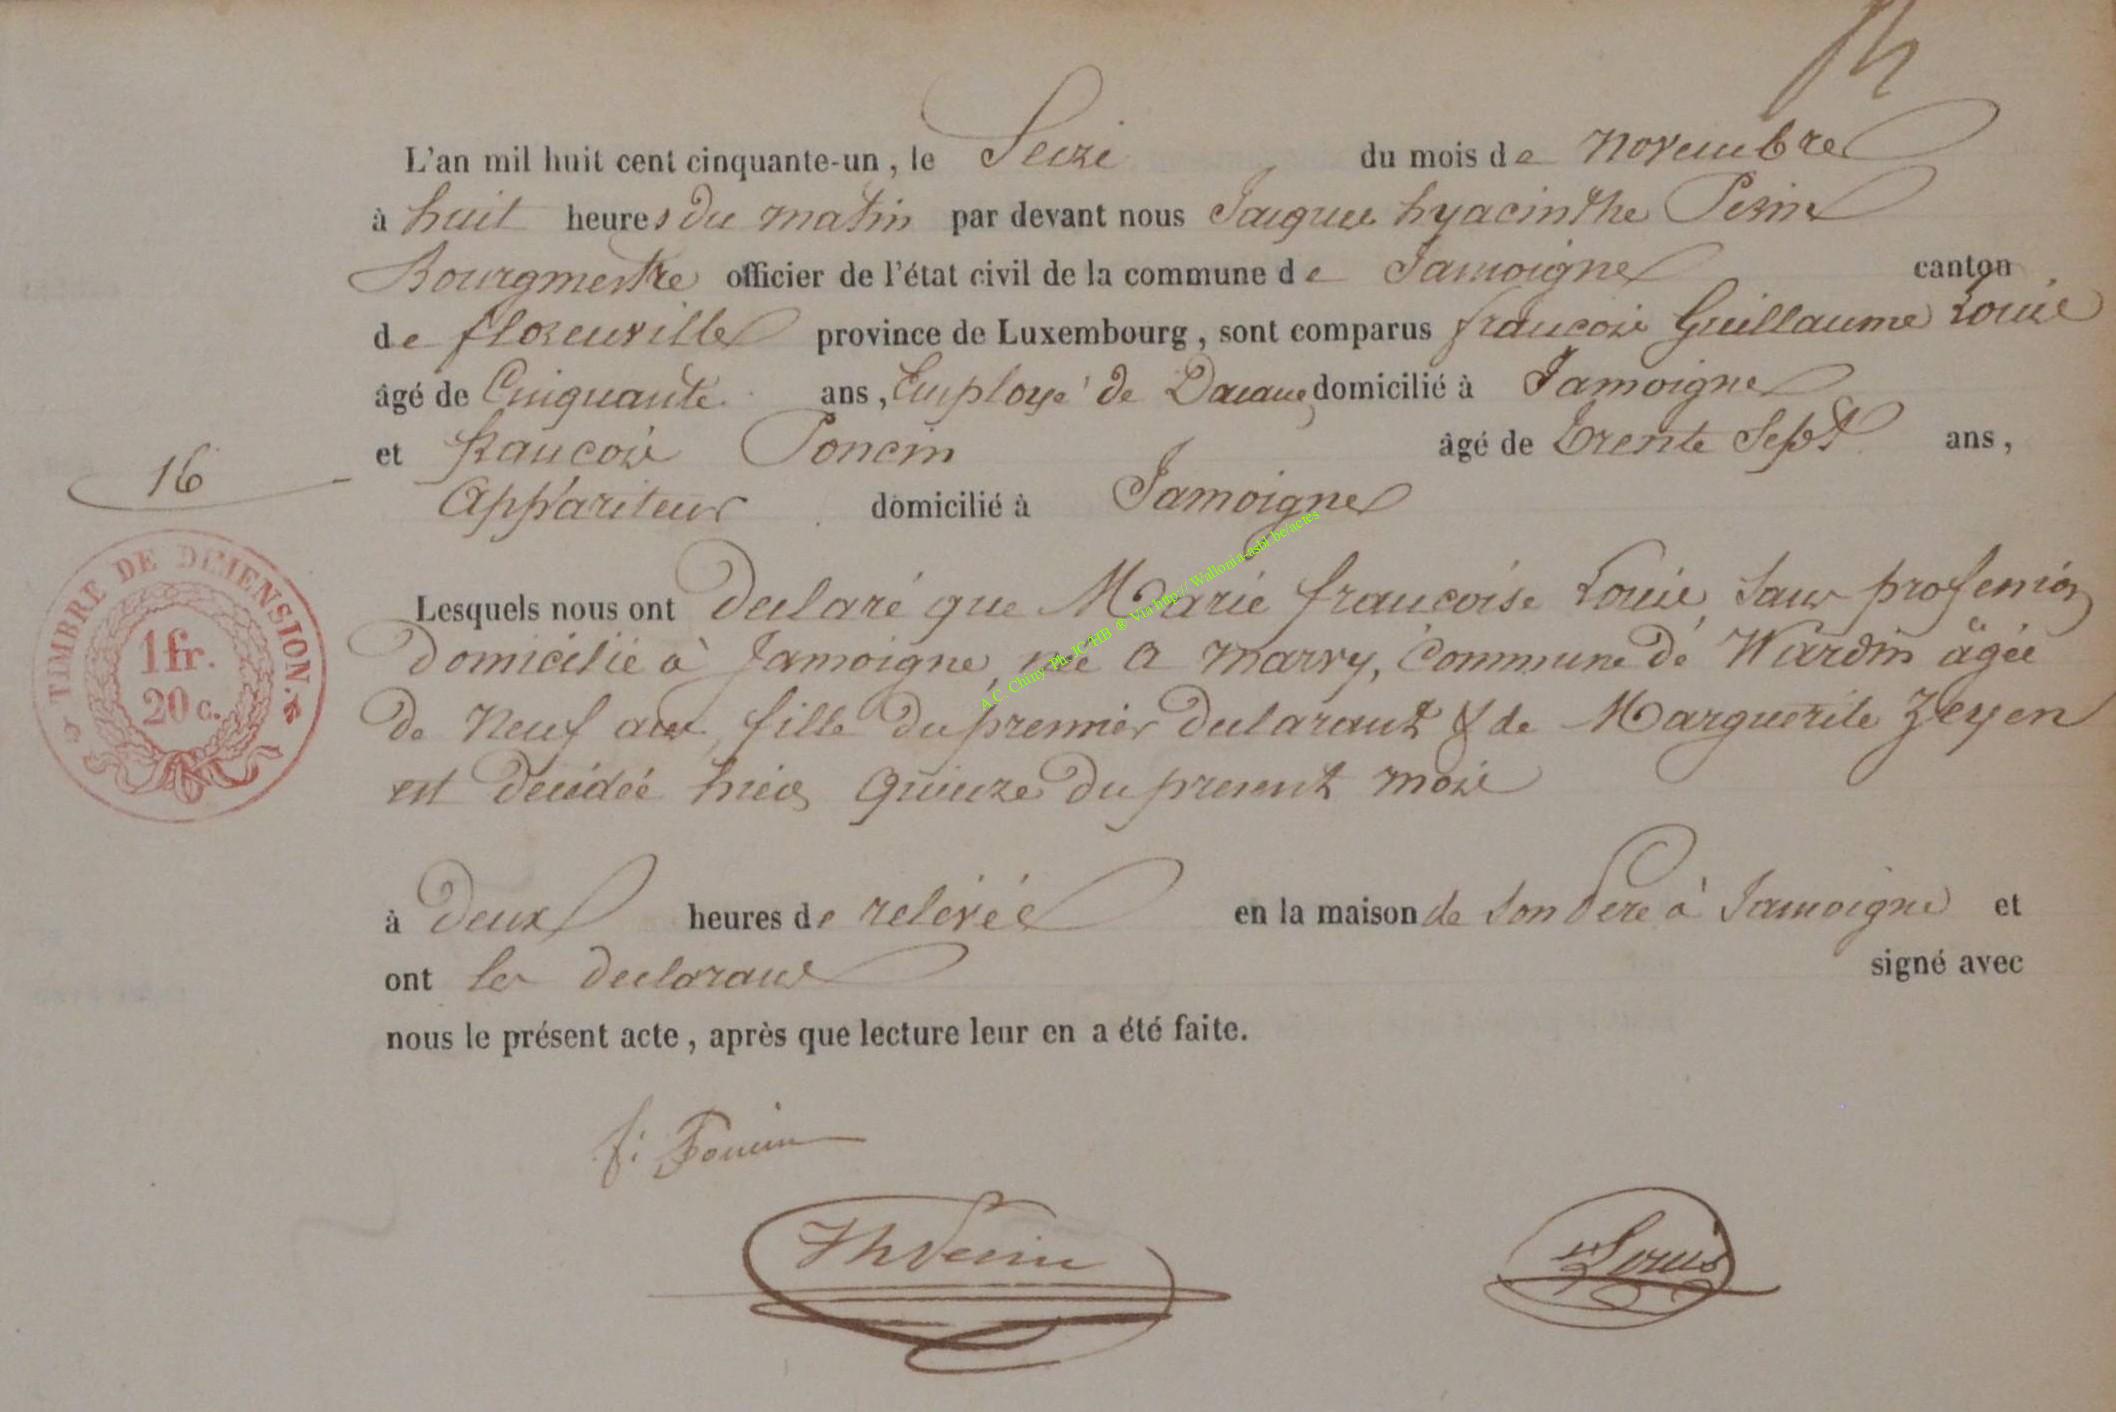 L'an mil huit cent cinquante-un, le Seize du mois de novembre
à huit heures du matin par devant nous Jacques hyacinthe Perin
Bourgmestre officier de l'état civil de la commune de Jamoigne canton
de florenville province de Luxembourg, sont comparus françois Guillaume Louis
âgé de Cinquante ans, Employé de Douane domicilié à Jamoigne
et françois Poncin âgé de trente Sept ans,
16
Appariteur domicilié à Jamoigne
Lesquels nous ont declaré que Marie françoise Louis, Sans profession
domicilié à Jamoigne, né a marvy, Commune de Wardin âgée
de Neuf ans, fille du premier declarant & de Marguerite Zeyen
est decédée hier quinze du present mois
à deux heures de relevée en la maison de son Pere à Jamoigne et
ont les declarans signé avec
nous le présent acte, après que lecture leur en a été faite.
TIMBRE DE DIMENSION.
1 fr.
20 c.
A.C. Chiny Ph. JC-HB @ Via http:// Wallonia-asbl.be/actes
f: Poncin
JhPerin
Louis